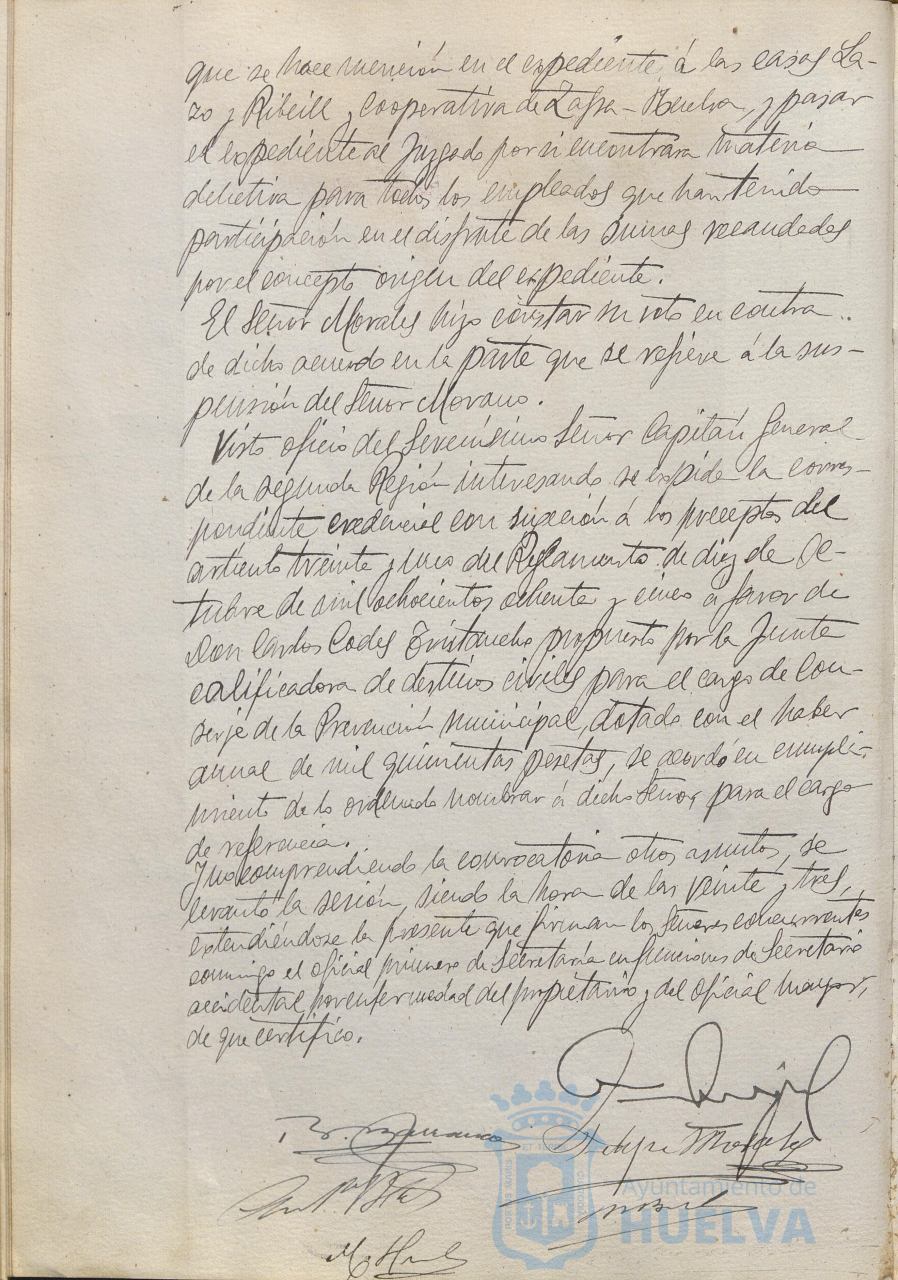 que se hace mención en el expediente, á las casas La-
zo y Ribeill y Cooperativa de Zafra-Huelva, y pasar
el expediente al Juzgado por si encontrara materia
delictiva para todos los empleados que han tenido
participación en el disfrute de las sumas recaudadas
por el concepto origen del expediente.
El Señor Morales hizo constar su voto en contra
de dicho acuerdo en la parte que se refiere á la sus-
pensión del Señor Morano.
Visto oficio del Serenísimo Señor Capitán General
de la segunda Región interesando se expida la corres-
pondiente credencial con sujeción á los preceptos del
artículo treinta y uno del Reglamento de diez de Oc-
tubre de mil ochocientos ochenta y cinco a favor de
Don Carlos Codes propuesto por la Junta
calificadora de destinos civiles para el cargo de Con-
serje de la Prevención municipal, dotado con el haber
anual de mil quinientas pesetas, se acordó en cumpli-
miento de lo ordenado nombrar á dicho Señor para el cargo
de referencia.
Y no comprendiendo la convocatoria otros asuntos, se
levantó la sesión, siendo la hora de las veinte y tres,
extendiéndose la presente que firman los Señores concurrentes
conmigo el oficial primero de Secretaría en funciones de Secretario
accidental por enfermedad del propietario y del oficial mayor,
de que certifico.
Morales
Ayuntamiento de
HUELVA